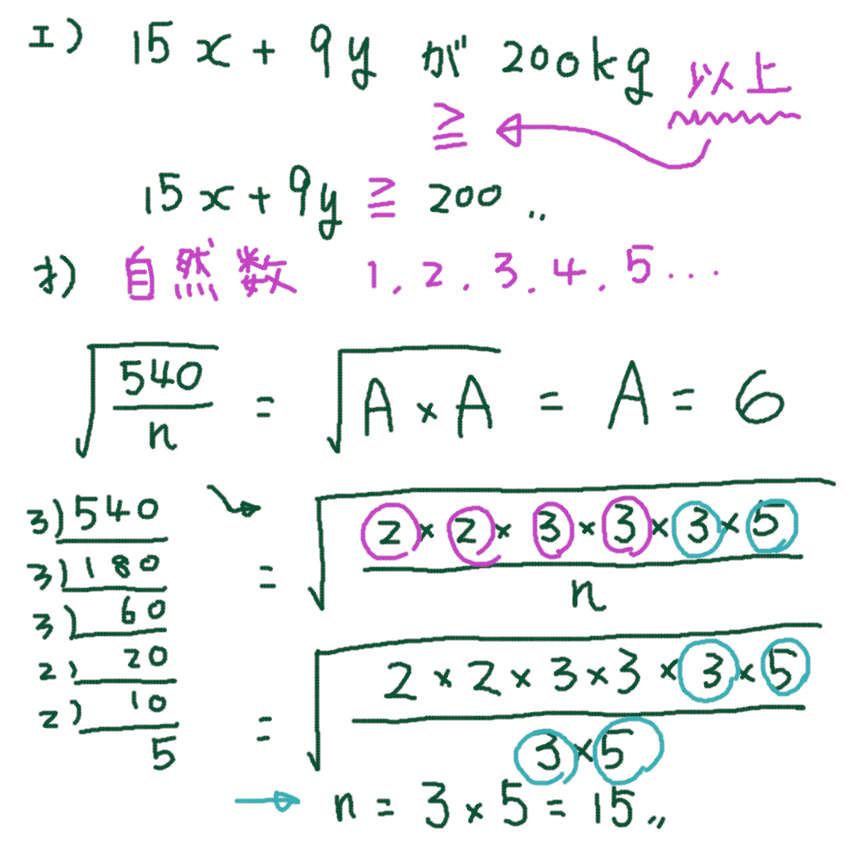 エ) 15x + 9y が 200kg 以上
≧
15x + 9y ≧ 200 〃
オ) 自然数 1, 2, 3, 4, 5 ...
√(540/n) = √(A × A) = A = 6
3)540
3)180
3)60
2)20
2)10
5
= √((2 × 2 × 3 × 3 × 3 × 5)/n)
= √((2 × 2 × 3 × 3 × 3 × 5)/(3 × 5))
→ n = 3 × 5 = 15 〃